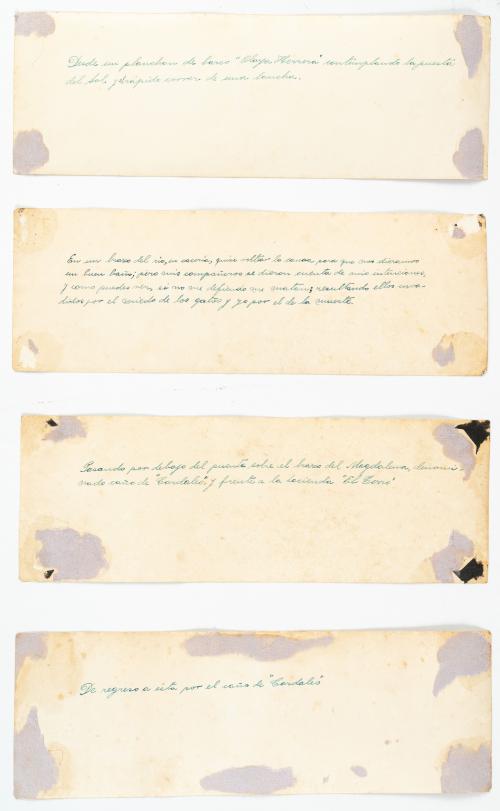 Desde un planchon de barco "Olaya Herrera" contemplando la puesta
del sol, y el rápido correr de una lancha.
En un brazo del río, en cacería, quise voltar la canoa para que nos dieramos
un buen baño; pero mis compañeros se dieron cuenta de mis intenciones,
y como puedes ver, si no me defiendo me matan; resultando ellos inva-
didos por el miedo de los gatos y yo por el de la muerte.
Pasando por debajo del puente sobre el brazo del Magdalena, denomi-
nado caño de "Cardales", y frente a la hacienda "El Toro"
De regreso a ésta por el caño de "Cardales"